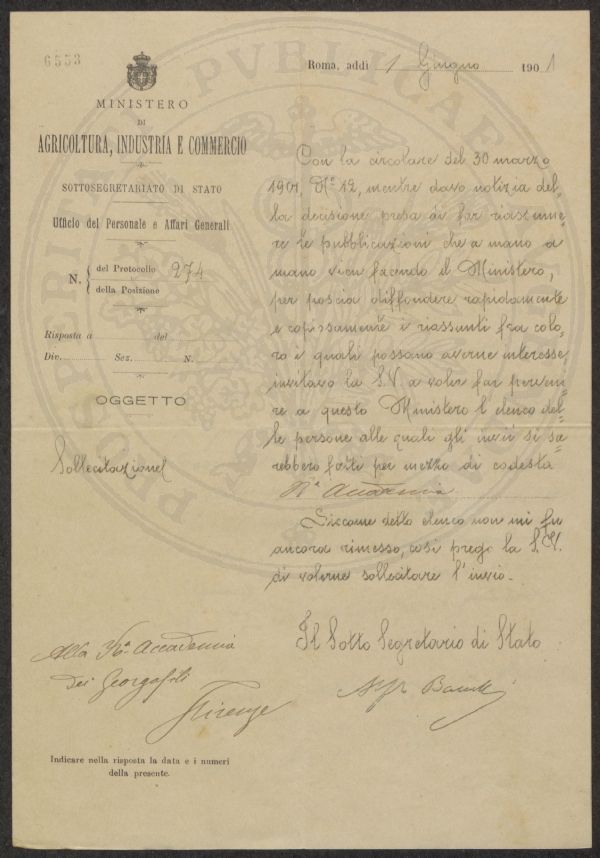 6553
Roma, addì 1 Giugno 1901
MINISTERO
DI
AGRICOLTURA, INDUSTRIA E COMMERCIO
SOTTOSEGRETARIATO DI STATO
Ufficio del Personale e Affari Generali
N. del Protocollo 274
della Posizione
Risposta a del
Div. Sez. N.
OGGETTO
Sollecitazione
Con la circolare del 30 marzo
1901, N.º 12, mentre davo notizia del-
la decisione presa di far riassume-
re le pubblicazioni che a mano a
mano vien facendo il Ministero,
per poscia diffondere rapidamente
e copiosamente i riassunti fra colo-
ro i quali possano averne interesse,
invitavo la S.V. a voler far perveni-
re a questo Ministero l'elenco del-
le persone alle quali gli invii si sa-
rebbero fatti per mezzo di codesta
Rª Accademia
Siccome detto elenco non mi fu
ancora rimesso, così prego la S.V.
di volerne sollecitare l'invio.
Il Sotto Segretario di Stato
Alla Rª Accademia
dei Georgofili
Firenze
Indicare nella risposta la data e i numeri
della presente.